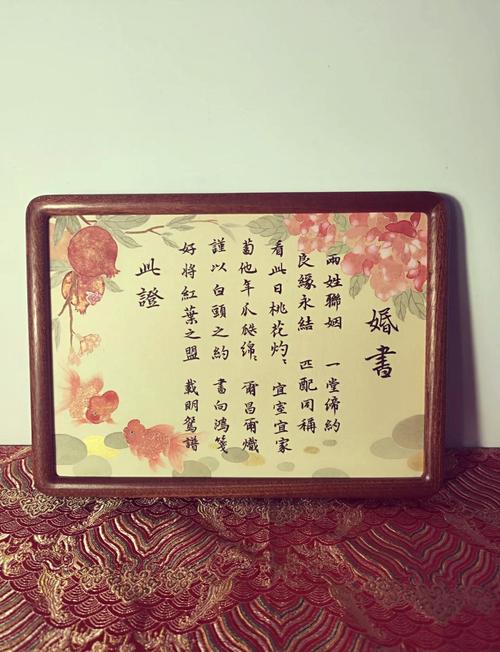 婚書
兩姓聯姻 一堂締約
良緣永結 匹配同稱
看此日桃花灼〻 宜室宜家
蔔他年瓜瓞綿〻 爾昌爾熾
謹以白頭之約 書向鴻箋
好將紅葉之盟 載明鴛譜
此證